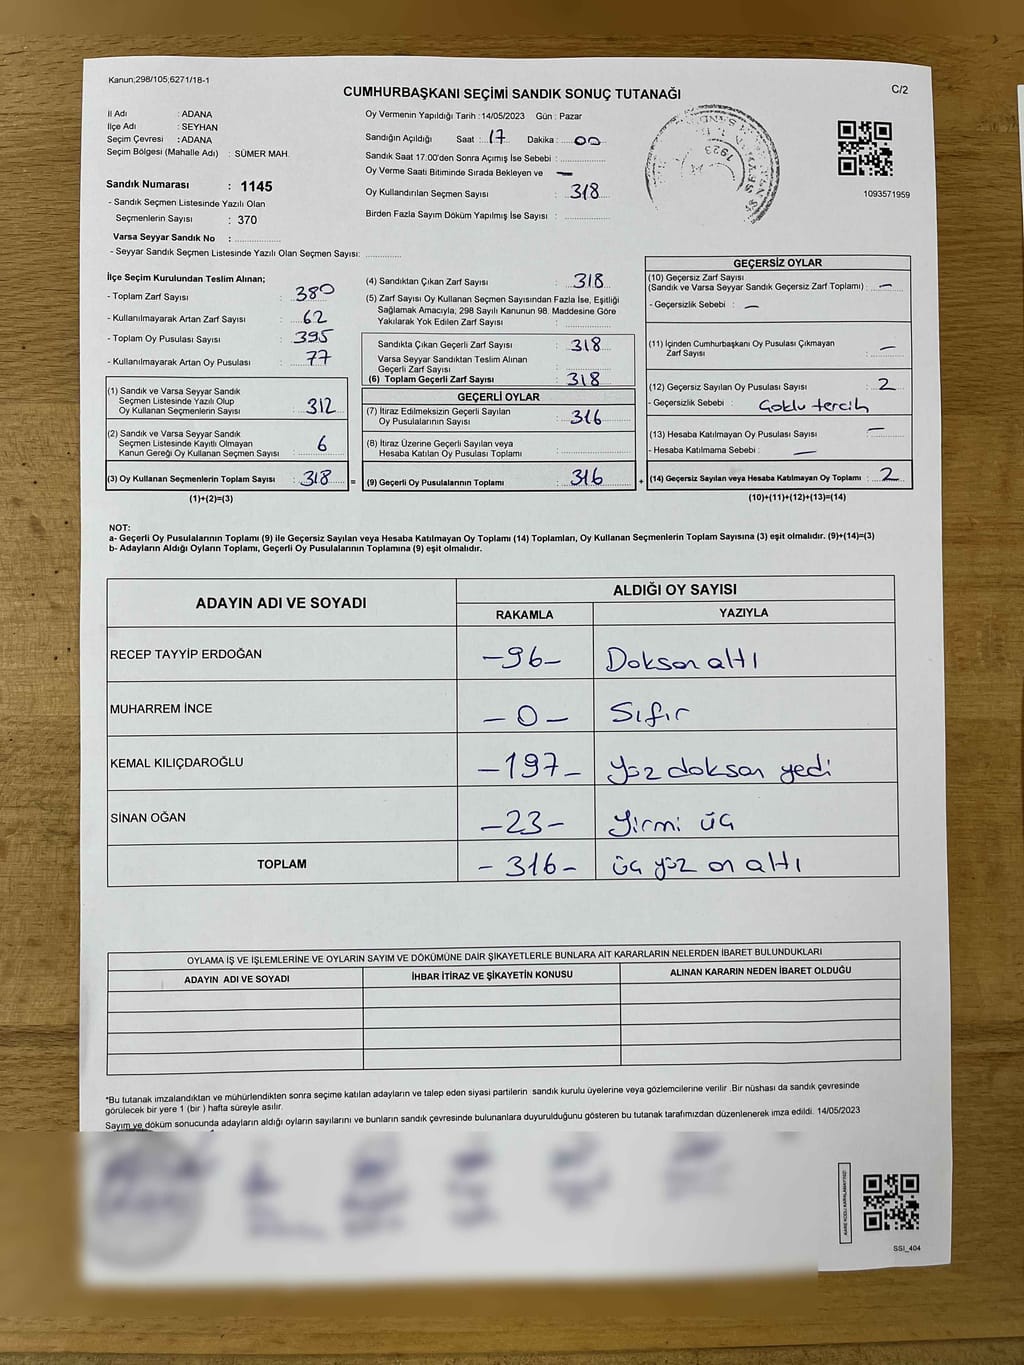 Kanun;298/105;6271/18-1
CUMHURBAŞKANI SEÇİMİ SANDIK SONUÇ TUTANAĞI
C/2
İl Adı : ADANA
İlçe Adı : SEYHAN
Seçim Çevresi : ADANA
Seçim Bölgesi (Mahalle Adı) : SÜMER MAH.
Sandık Numarası : 1145
- Sandık Seçmen Listesinde Yazılı Olan
Seçmenlerin Sayısı : 370
Varsa Seyyar Sandık No :
- Seyyar Sandık Seçmen Listesinde Yazılı Olan Seçmen Sayısı:
Oy Vermenin Yapıldığı Tarih : 14/05/2023 Gün : Pazar
Sandığın Açıldığı Saat : 17 Dakika : 00
Sandık Saat 17.00'den Sonra Açımış İse Sebebi :
Oy Verme Saati Bitiminde Sırada Bekleyen ve —
Oy Kullandırılan Seçmen Sayısı : 318
Birden Fazla Sayım Döküm Yapılmış İse Sayısı :
1093571959
İlçe Seçim Kurulundan Teslim Alınan;
- Toplam Zarf Sayısı : 380
- Kullanılmayarak Artan Zarf Sayısı : 62
- Toplam Oy Pusulası Sayısı : 395
- Kullanılmayarak Artan Oy Pusulası : 77
(1) Sandık ve Varsa Seyyar Sandık
Seçmen Listesinde Yazılı Olup
Oy Kullanan Seçmenlerin Sayısı : 312
(2) Sandık ve Varsa Seyyar Sandık
Seçmen Listesinde Kayıtlı Olmayan
Kanun Gereği Oy Kullanan Seçmen Sayısı : 6
(3) Oy Kullanan Seçmenlerin Toplam Sayısı : 318 =
(1)+(2)=(3)
(4) Sandıktan Çıkan Zarf Sayısı : 318
(5) Zarf Sayısı Oy Kullanan Seçmen Sayısından Fazla İse, Eşitliği
Sağlamak Amacıyla, 298 Sayılı Kanunun 98. Maddesine Göre
Yakılarak Yok Edilen Zarf Sayısı :
Sandıkta Çıkan Geçerli Zarf Sayısı : 318
Varsa Seyyar Sandıktan Teslim Alınan
Geçerli Zarf Sayısı :
(6) Toplam Geçerli Zarf Sayısı : 318
GEÇERLİ OYLAR
(7) İtiraz Edilmeksizin Geçerli Sayılan
Oy Pusulalarının Sayısı : 316
(8) İtiraz Üzerine Geçerli Sayılan veya
Hesaba Katılan Oy Pusulası Toplamı :
(9) Geçerli Oy Pusulalarının Toplamı : 316 +
GEÇERSİZ OYLAR
(10) Geçersiz Zarf Sayısı
(Sandık ve Varsa Seyyar Sandık Geçersiz Zarf Toplamı) : —
- Geçersizlik Sebebi : —
(11) İçinden Cumhurbaşkanı Oy Pusulası Çıkmayan
Zarf Sayısı : —
(12) Geçersiz Sayılan Oy Pusulası Sayısı : 2
- Geçersizlik Sebebi : Çoklu tercih
(13) Hesaba Katılmayan Oy Pusulası Sayısı : —
- Hesaba Katılmama Sebebi : —
(14) Geçersiz Sayılan veya Hesaba Katılmayan Oy Toplamı : 2
(10)+(11)+(12)+(13)=(14)
NOT:
a- Geçerli Oy Pusulalarının Toplamı (9) ile Geçersiz Sayılan veya Hesaba Katılmayan Oy Toplamı (14) Toplamları, Oy Kullanan Seçmenlerin Toplam Sayısına (3) eşit olmalıdır. (9)+(14)=(3)
b- Adayların Aldığı Oyların Toplamı, Geçerli Oy Pusulalarının Toplamına (9) eşit olmalıdır.
ADAYIN ADI VE SOYADI
ALDIĞI OY SAYISI
RAKAMLA YAZIYLA
RECEP TAYYİP ERDOĞAN –96– Doksan altı
MUHARREM İNCE –0– Sıfır
KEMAL KILIÇDAROĞLU –197– Yüz doksan yedi
SİNAN OĞAN –23– Yirmi üç
TOPLAM –316– üç yüz on altı
OYLAMA İŞ VE İŞLEMLERİNE VE OYLARIN SAYIM VE DÖKÜMÜNE DAİR ŞİKAYETLERLE BUNLARA AİT KARARLARIN NELERDEN İBARET BULUNDUKLARI
ADAYIN ADI VE SOYADI İHBAR İTİRAZ VE ŞİKAYETİN KONUSU ALINAN KARARIN NEDEN İBARET OLDUĞU
*Bu tutanak imzalandıktan ve mühürlendikten sonra seçime katılan adayların ve talep eden siyasi partilerin sandık kurulu üyelerine veya gözlemcilerine verilir .Bir nüshası da sandık çevresinde
görülecek bir yere 1 (bir ) hafta süreyle asılır.
Sayım ve döküm sonucunda adayların aldığı oyların sayılarını ve bunların sandık çevresinde bulunanlara duyurulduğunu gösteren bu tutanak tarafımızdan düzenlenerek imza edildi. 14/05/2023
SSI_404